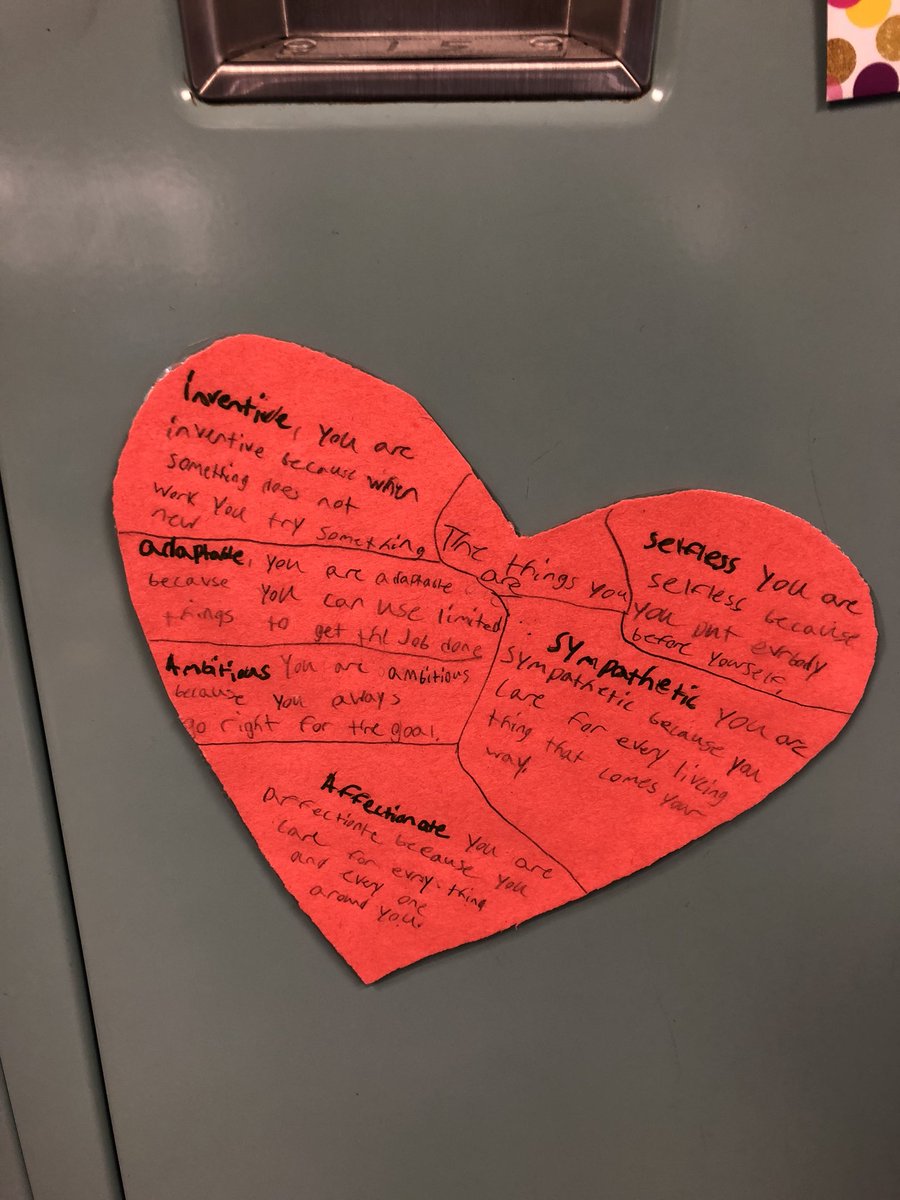 Inventive, you are
inventive because when
something does not
work you try something
new
The things you
are
adaptable, you are adaptable
because you can use limited
things to get the job done
Ambitious you are ambitious
because you aways
go right for the goal.
Affectionate you are
affectionte because you
care for evry-thing
and every one
around you.
selfless you are
selfless because
you put evrbody
before yourself.
sympathetic you are
sympathetic because you
care for every liveing
thing that comes your
way.